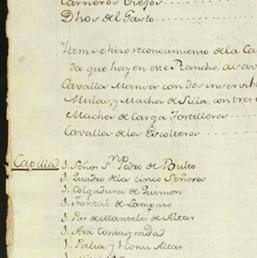 Carneros Viejos
Dhos del Gasto
Item se hizo reconocimiento de la Ca
da que hay en este Rancho,
Cavallos Mansos con dos inservi
Mulas, y Machos de Silla, con tres
Machos de Carga
Cavallos de los Escolteros
Capilla
1. Señor Sn. Pedro de Bulto
1. Quadro de la cinco Señores
1. Colgadura de
1. Fontal de Lamparo
1. Par de Manteles de Altar
1. Ara Consagrada
1. Palia, y Altar